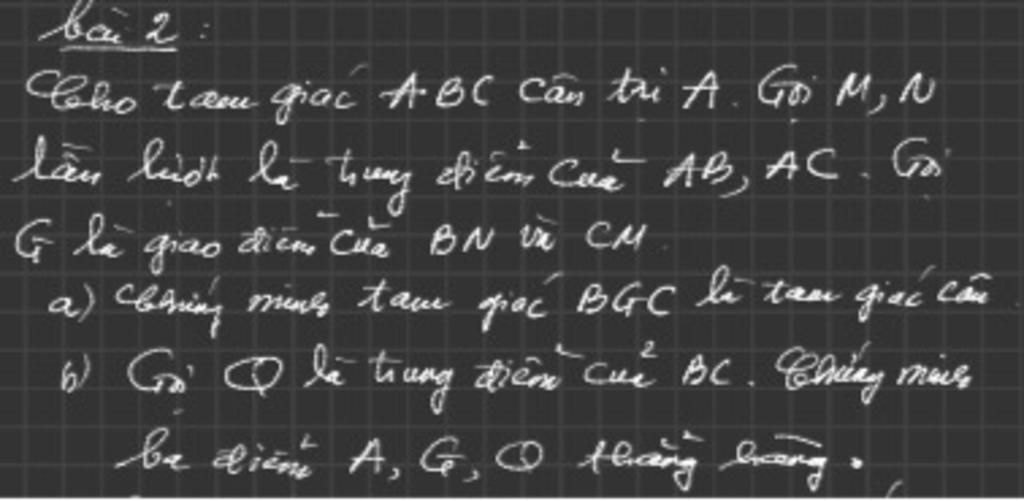 bài 2 :
Cho tam giác ABC cân tại A. Gọi M, N
lần lượt là trung điểm của AB, AC. Gọi
G là giao điểm của BN và CM.
a) Chứng minh tam giác BGC là tam giác cân
b) Gọi Q là trung điểm của BC. Chứng minh
ba điểm A, G, Q thẳng hàng.